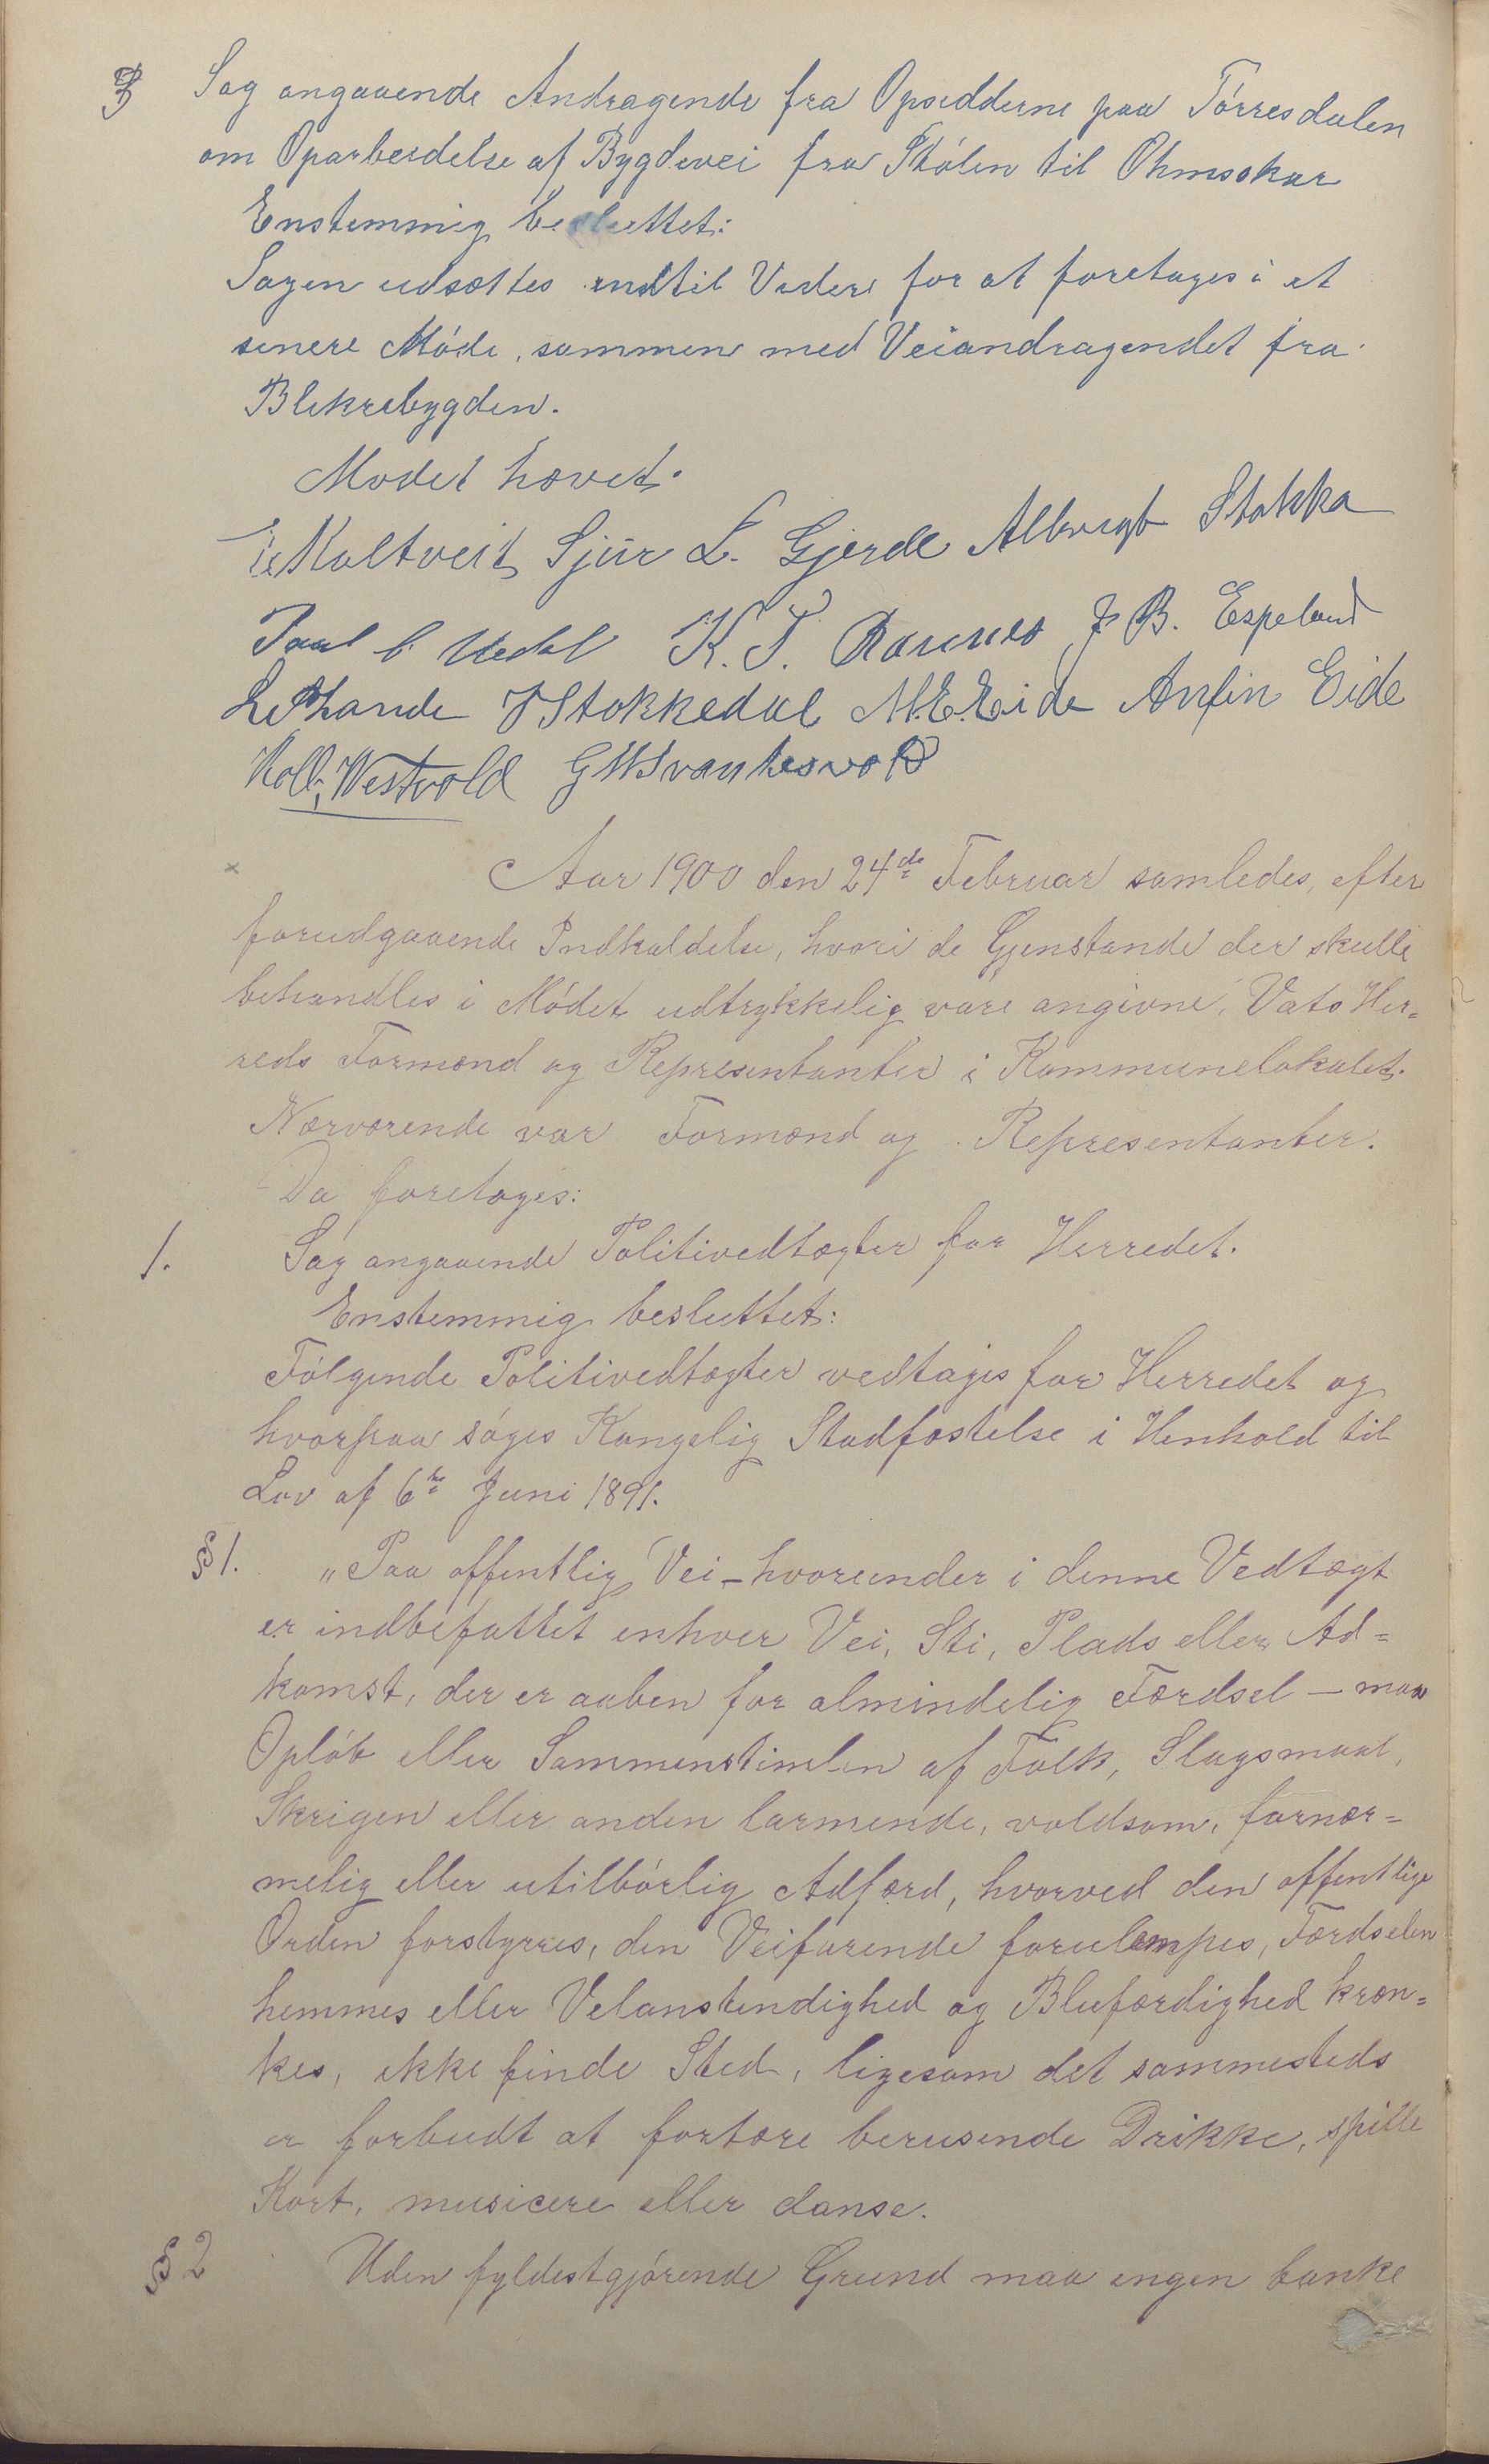 3 Sag angaaende Andragende fra Opsidderne paa Tørresdalen
om Oparbeidelse af Bygdevei fra Stølen til Ohmsskar
Enstemmig besluttet:
Sagen udsættes indtil Videre for at foretages i et
senere Møde, sammen med Veiandragendet fra
Blikrabygden.
Mødet hævet.
Kaltveit Sjur L. Gjerde Albregt Stakka
Paul K. T. Rannes J B. Espeland
Stokkedal M. E. Eide Anfin Eide
Westvold
Aar 1900 den 24de Februar samledes, efter
forudgaaende Indkaldelse, hvori de Gjenstande der skulle
behandles i Mødet udtrykkelig vare angivne, Vats Her=
reds Formænd og Representanter i Kommunelokalet.
Nærværende var Formænd og Representanter.
Da foretoges:
1. Sag angaaende Politivedtægter for Herredet.
Enstemmig besluttet:
Følgende Politivedtægter vedtages for Herredet og
hvorpaa søges Kongelig Stadfæstelse i Henhold til
Lov af 6te Juni 1891.
§ 1. „Paa offentlig Vei – hvorunder i denne Vedtægt
er indbefattet enhver Vei, Sti, Plads eller Ad=
komst, der er aaben for almindelig Færdsel – maa
Opløb eller Sammenstimlen af Folk, Slagsmaal,
Skrigen eller anden larmende, voldsom, fornær=
melig eller utilbørlig Adfærd, hvorved den offentlige
Orden forstyrres, den Veifarende forulempes, Færdselen
hemmes eller Velanstendighed og Blufærdighed kræn=
kes, ikke finde Sted, ligesom det sammesteds
er forbudt at fortære berusende Drikke, spille
Kort, musicere eller danse.
§ 2 Uden fyldestgjørende Grund maa ingen banke